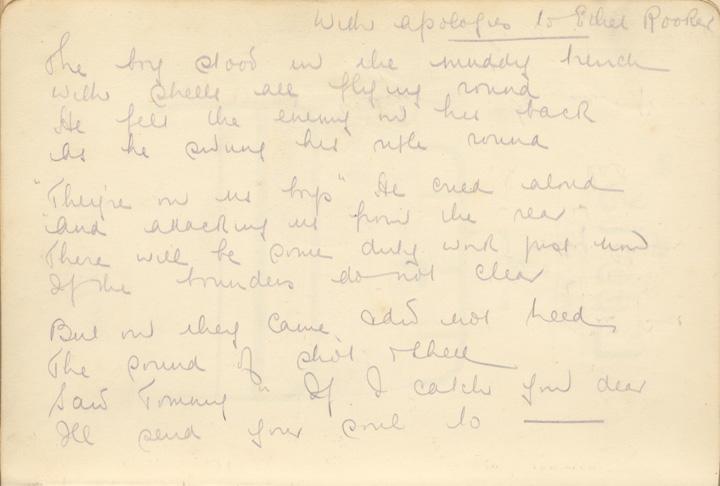 With apologies to Ethel Rooker
The boy stood in the muddy trench
With shells all flying round
He felt the enemy on his back
As he swung his rifle round
"They're on us boys" He cried aloud
"and attacking us from the rear"
There will be some dirty work just now
If the bounders do not clear
But on they came, did not heed
The sound of shot & shell
Said Tommy "If I catch you dear
I'll send your soul to ———